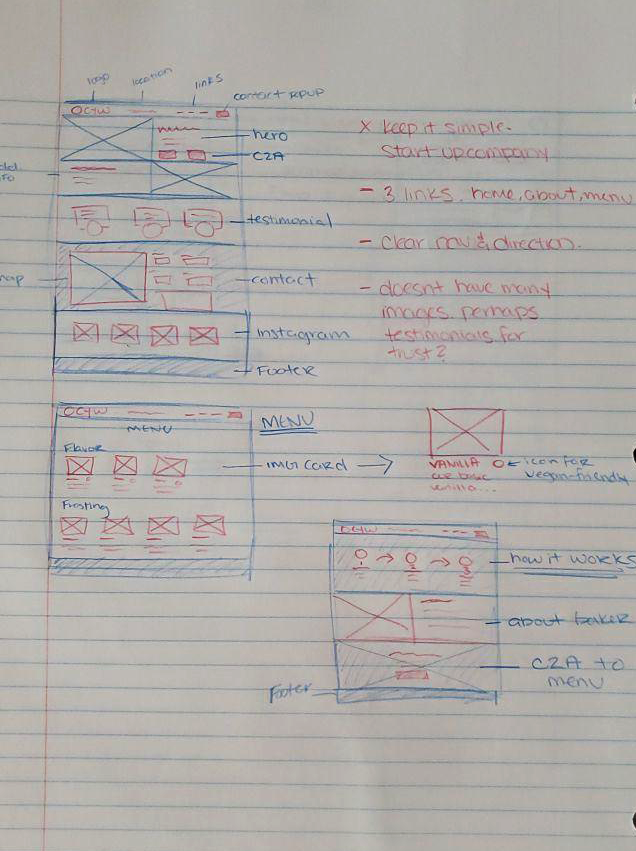 logo
location
links
contact popup
OCYW
hero
C2A
testimonial
contact
Instagram
Footer
x keep it simple.
start up company
- 3 links. home, about, menu
- clear nav & direction.
- doesnt have many
images. perhaps
testimonials for
trust?
OCYW
MENU
MENU
Flavor
IMG CARD
Frosting
VANILLA
icon for
vegan-friendly
vanilla...
OCYW
how it works
about baker
C2A to
menu
Footer